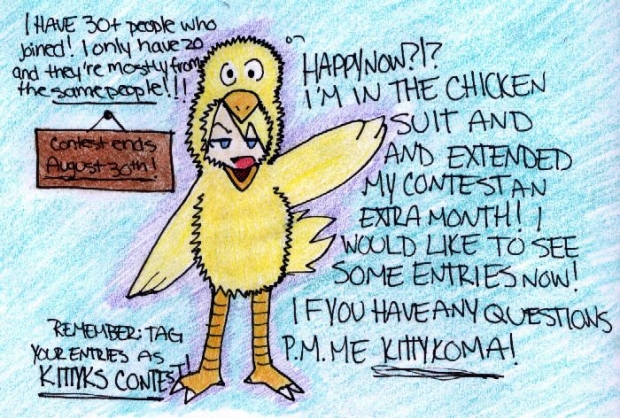 I HAVE 30+ people who
joined! I only have 20
and they're mostly from
the same people!!!
Contest ends
August 30th!
HAPPY NOW?!?
I'M IN THE CHICKEN
SUIT AND
AND EXTENDED
MY CONTEST AN
EXTRA MONTH! I
WOULD LIKE TO SEE
SOME ENTRIES NOW!
IF YOU HAVE ANY QUESTIONS
P.M. ME KITTYKOMA!
REMEMBER: TAG
YOUR ENTRIES AS
KITTYKS CONTEST!